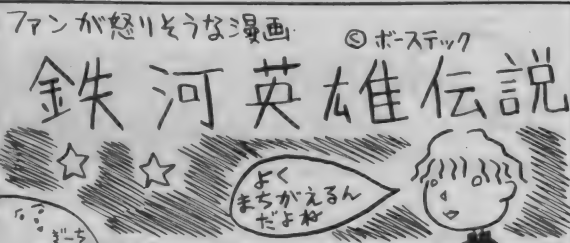 ファンが怒りそうな漫画
© ボーステック
鉄河英雄伝説
よく
まちがえるん
だよね
ぎーち